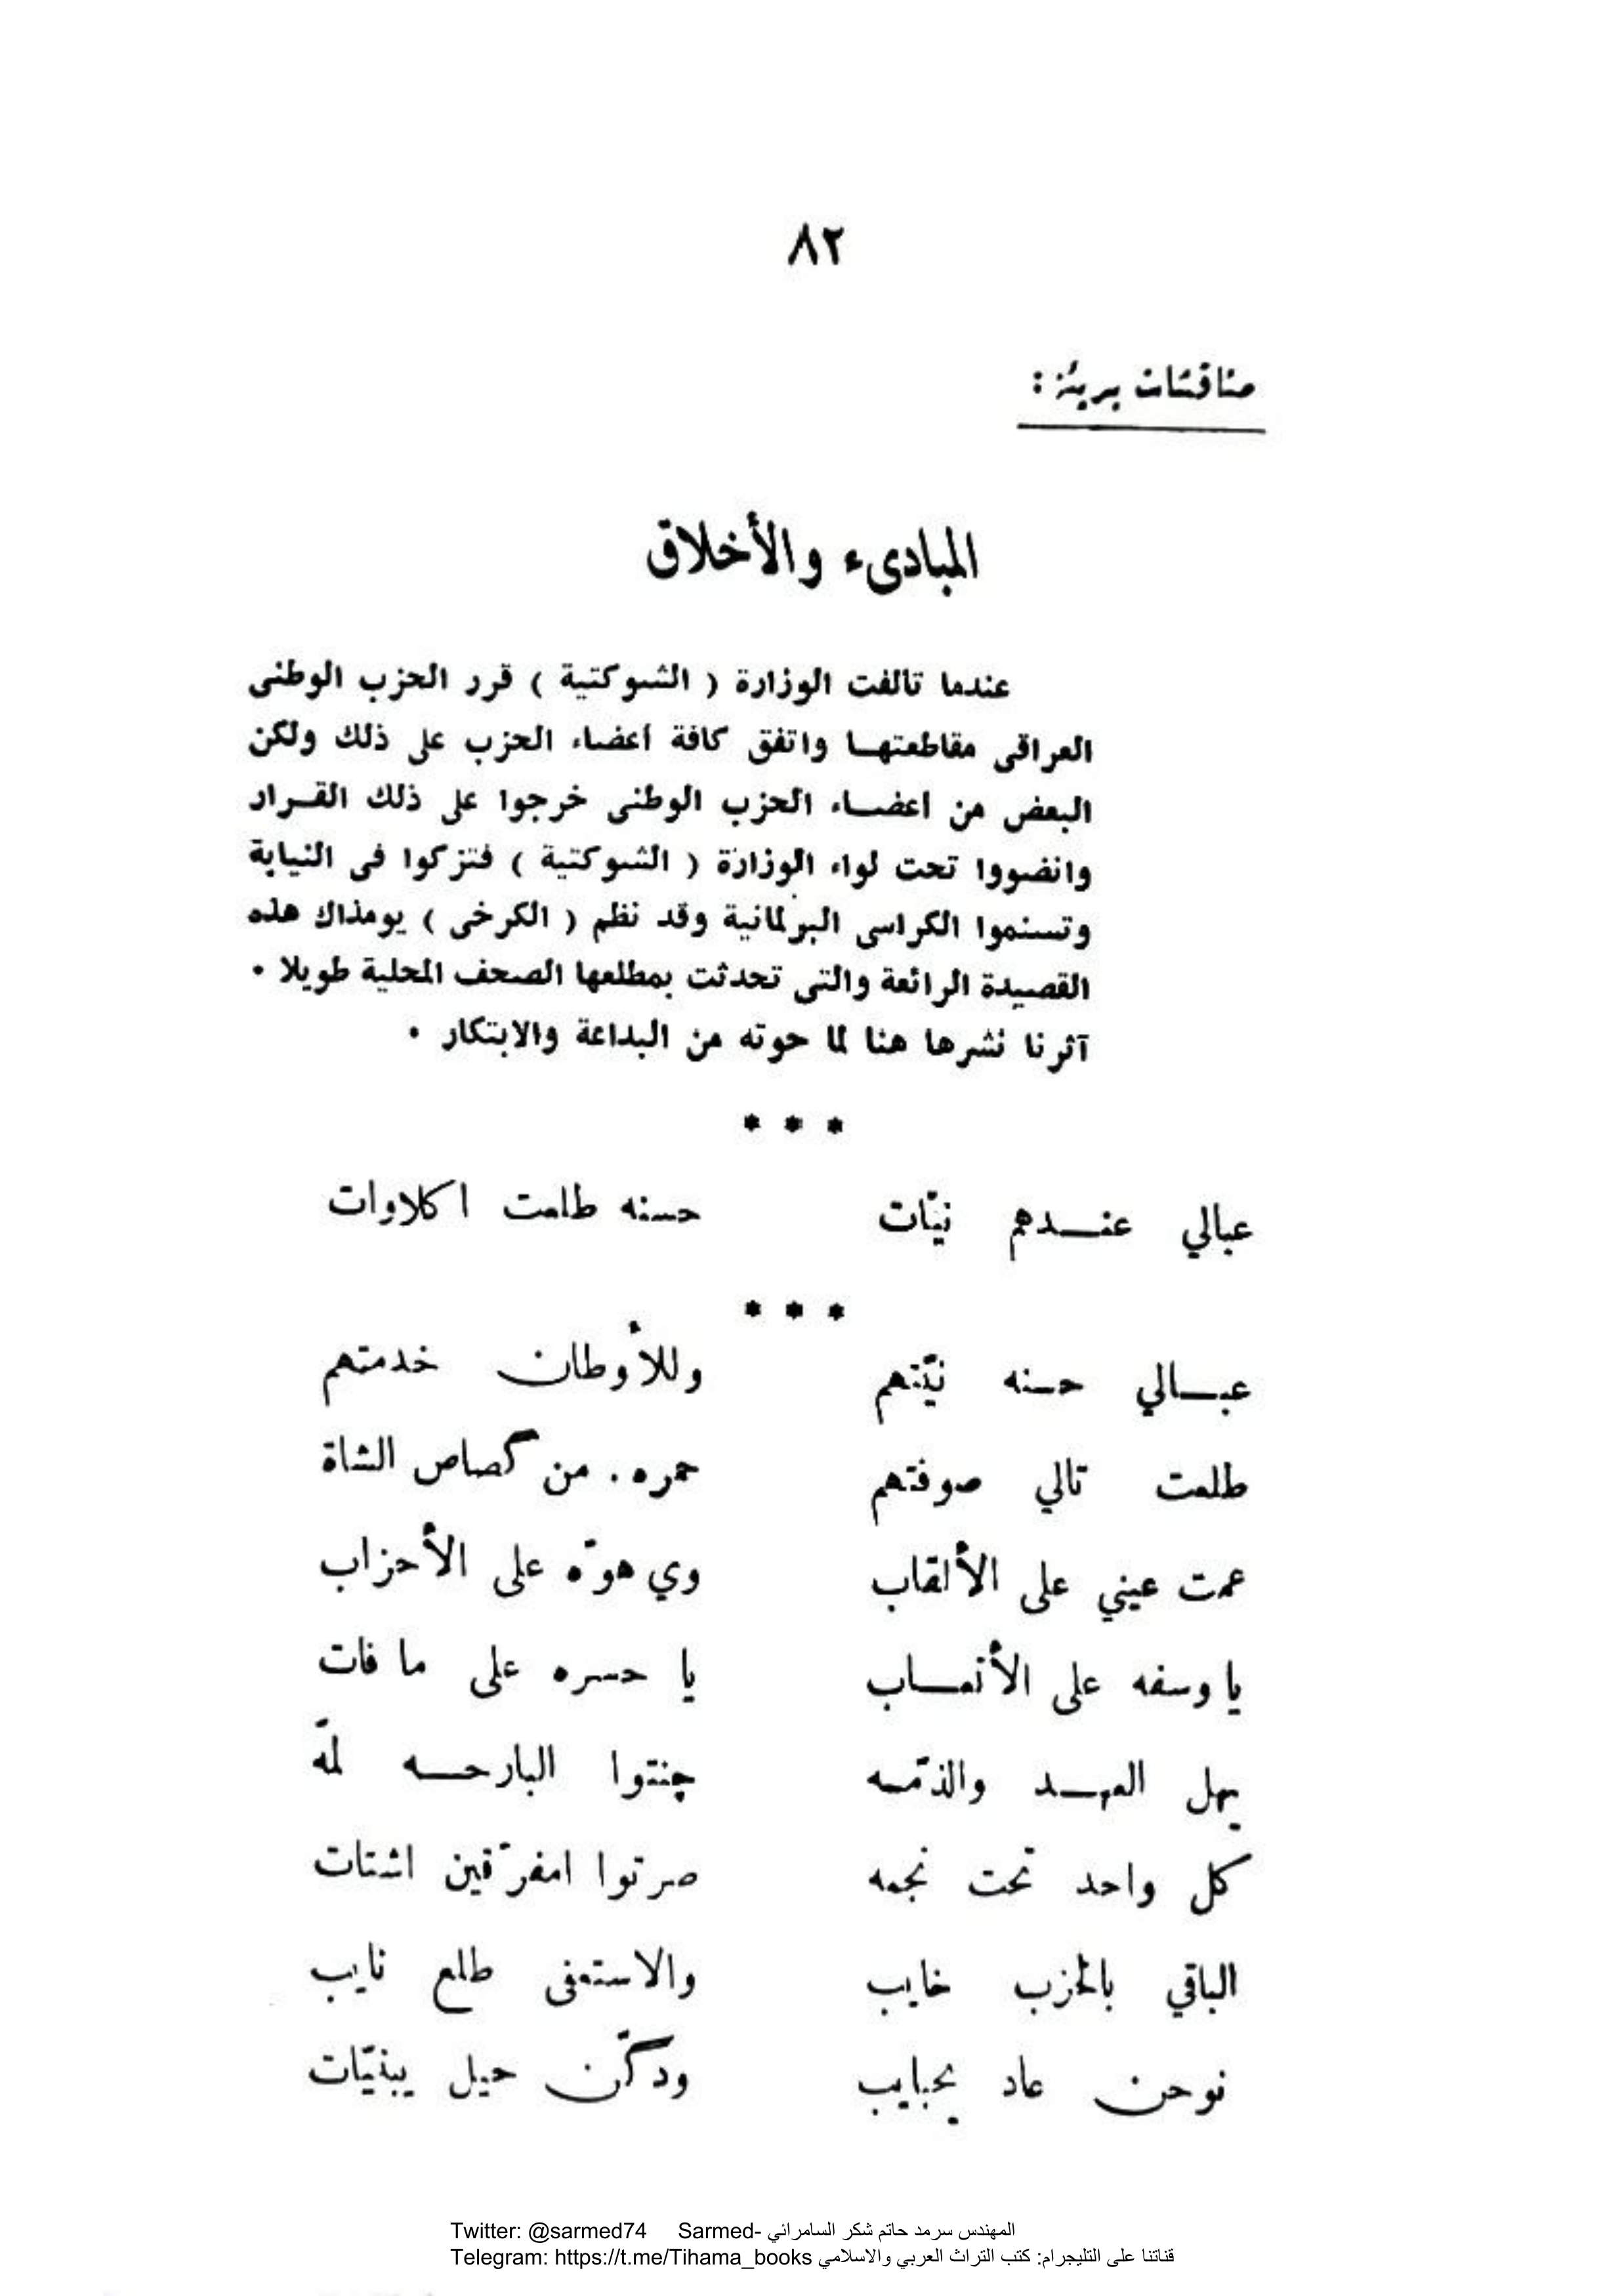 ٨٢
مناقشات بريئة :
المبادىء والأخلاق
عندما تالفت الوزارة ( الشوكتية ) قرر الحزب الوطنى
العراقى مقاطعتها واتفق كافة اعضاء الحزب على ذلك ولكن
البعض من اعضاء الحزب الوطنى خرجوا على ذلك القرار
وانضووا تحت لواء الوزارة ( الشوكتية ) فتزكوا فى النيابة
وتسنموا الكراسى البرلمانية وقد نظم ( الكرخى ) يومذاك هذه
القصيدة الرائعة والتى تحدثت بمطلعها الصحف المحلية طويلا .
آثرنا نشرها هنا لما حوته من البداعة والابتكار .
* * *
عبالي عندهم نيّات حسنه طلعت اكلاوات
* * *
عبالي حسنه نيّتهم وللأوطان خدمتهم
طلعت تالي صوفتهم حمره . من گصاص الشاة
عمت عيني على الألقاب وي هوّه على الأحزاب
يا وسفه على الأتعاب يا حسره على ما فات
يهل العهد والذمّه چنتوا البارحه لمّه
كل واحد تحت نجمه صرتوا امفرّقين اشتات
الباقي بالحزب خايب والاستعفى طلع نايب
نوحن عاد يحبايب ودگّن حيل يبنيّات
Twitter: @sarmed74 Sarmed- المهندس سرمد حاتم شكر السامرائي
Telegram: https://t.me/Tihama_books قناتنا على التليجرام: كتب التراث العربي والاسلامي